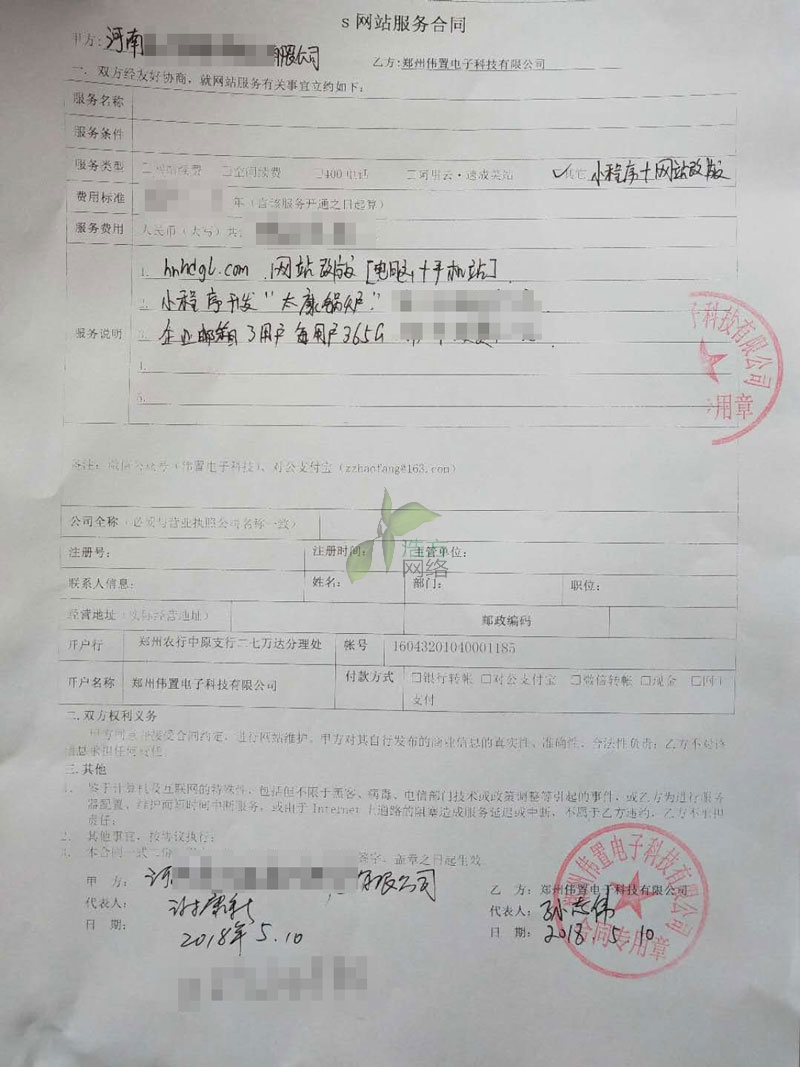 s 网站服务合同
甲方: 河南 股公司
乙方:郑州伟置电子科技有限公司
一. 双方经友好协商,就网站服务有关事宜立约如下:
服务名称
服务条件
服务类型 □网站续费 □空间续费 □400电话 □阿里云·速成美站 ✓其它 小程序+网站改版
费用标准 年(自该服务开通之日起算)
服务费用 人民币(大写)共:
服务说明
1. hnhdgl.com 网站改版 [电脑+手机站]
小程序开发"太康锅炉"
3 企业邮箱 3用户 每用户365G
4.
5.
备注: 微信公众号(伟置电子科技)、对公支付宝(zzhaofang@163.com)
浩方
网络
公司全称(必须与营业执照公司名称一致)
注册号: 注册时间: 主管单位:
联系人信息: 姓名: 部门: 职位:
经营地址(实际经营地址) 邮政编码
开户行 郑州农行中原支行二七万达分理处 帐号 16043201040001185
开户名称 郑州伟置电子科技有限公司 付款方式 □银行转帐 □对公支付宝 □微信转帐 □现金 □网上
支付
二.双方权利义务
甲方同意并接受合同约定,进行网站维护。甲方对其自行发布的商业信息的真实性、准确性、合法性负责;乙方不对该
信息承担任何责任。
三.其他
1、 鉴于计算机及互联网的特殊性,包括但不限于黑客、病毒、电信部门技术或政策调整等引起的事件,或乙方为进行服务
器配置、维护而短时间中断服务,或由于 Internet 上通路的阻塞造成服务延迟或中断,不属于乙方违约,乙方不承担
责任;
2、 其他事宜,按协议执行;
3、 本合同一式二份 签字、盖章之日起生效。
甲 方: 河 有限公司
乙 方:郑州伟置电子科技有限公司
代表人:
代表人: 孙志伟
日 期: 2018年5.10
日 期: 2018.5.10
子科技有限公司
用章
郑州伟置电子科技有限公司
合同专用章